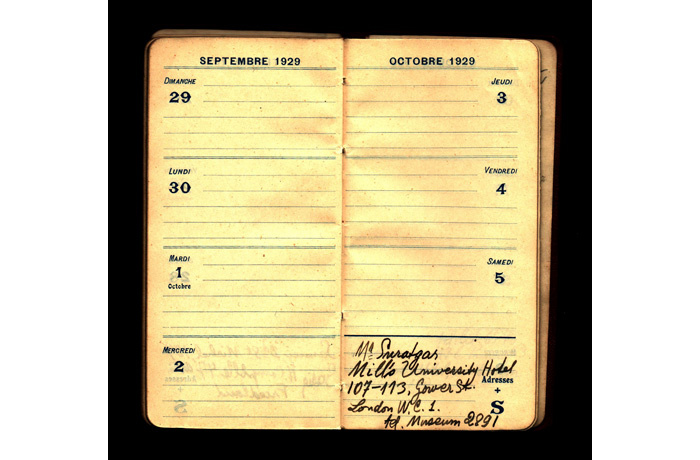 SEPTEMBRE 1929
DIMANCHE
29
LUNDI
30
MARDI
1
Octobre
MERCREDI
2
Adresses
+
S
OCTOBRE 1929
JEUDI
3
VENDREDI
4
SAMEDI
5
Mr Suratgar
Mill's University Hotel
107-113, Gower St.
London W.C. 1.
Tel. Museum 2891
Adresses
+
S